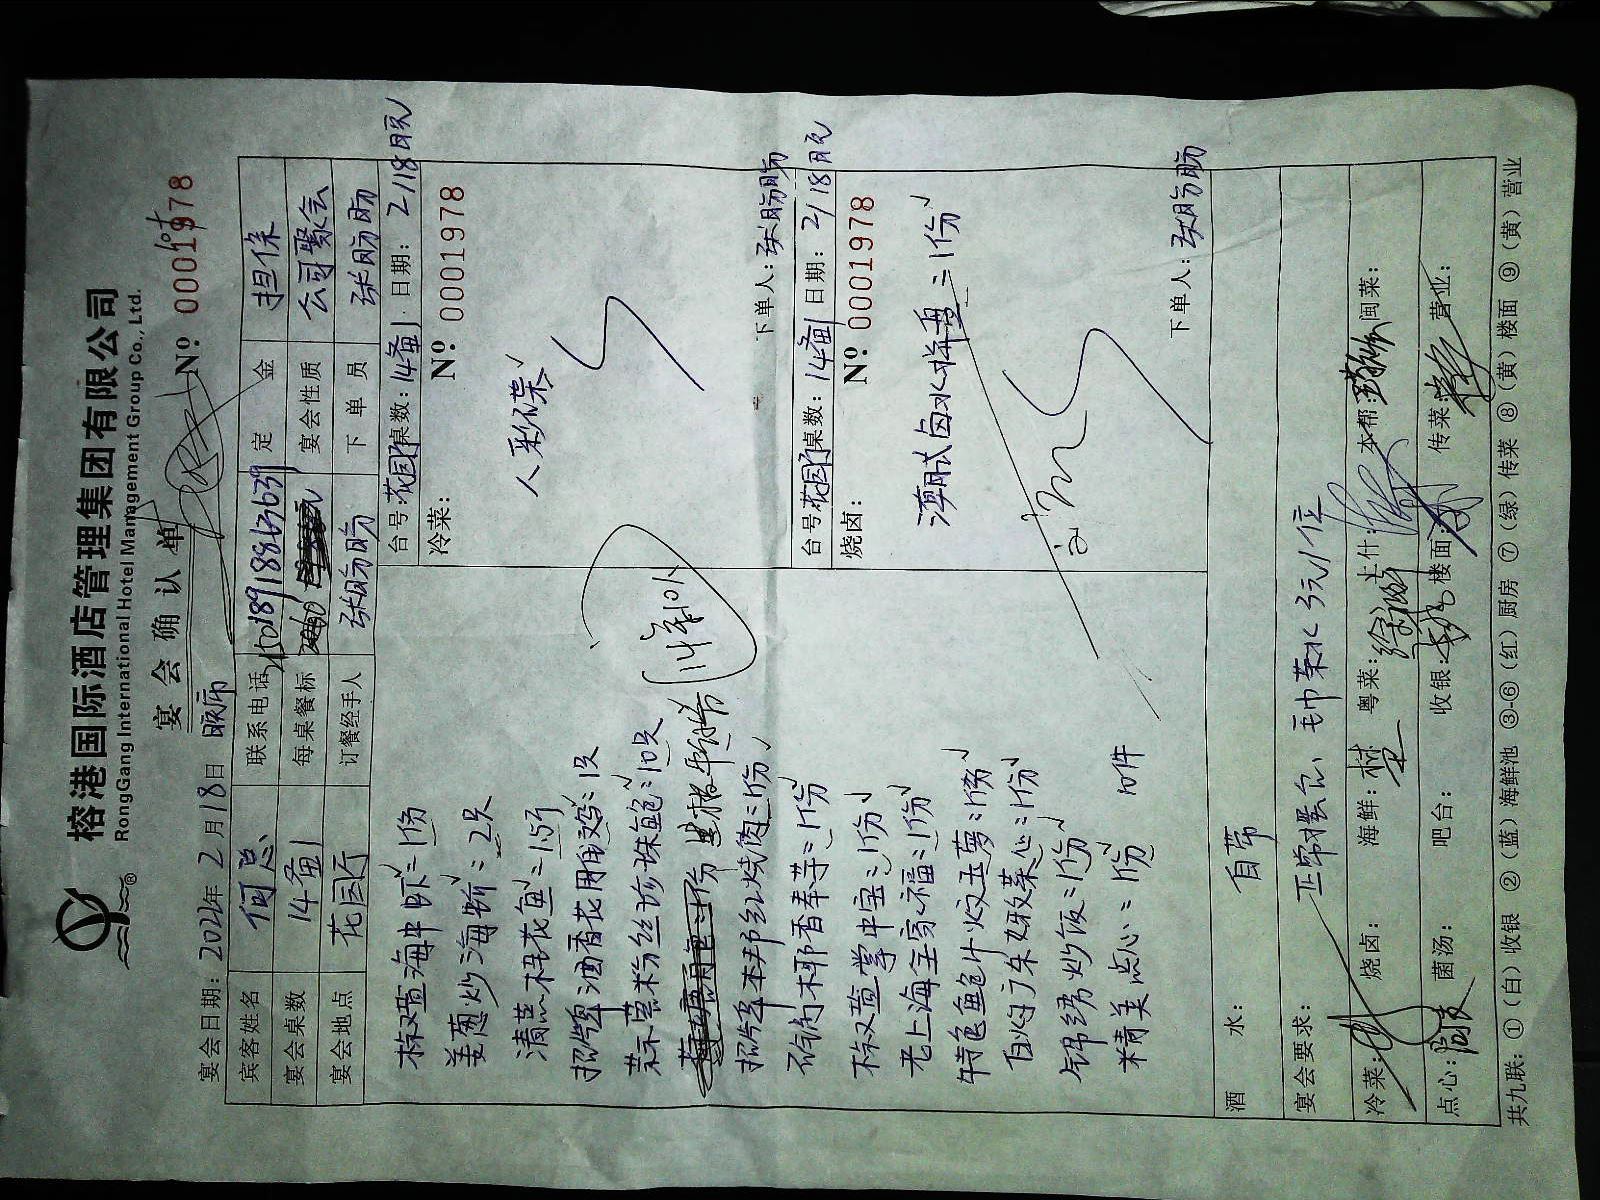 榕港国际酒店管理集团有限公司
RongGang International Hotel Management Group Co., Ltd.
宴会确认单
№ 0001978
宴会日期: 2021年 2月18日 晚市
宾客姓名 何总 联系电话 18918863639 定金 担保
宴会桌数 14备1 每桌餐标 宴会性质 公司聚会
宴会地点 花园厅 订餐经手人 张肠肠 下单员 张肠肠
台号:花园厅 桌数:14备1 日期: 2/18晚
冷菜:
№ 0001978
八彩碟
下单人:张肠肠
台号:花园厅 桌数:14备1 日期: 2/18晚
烧卤:
№ 0001978
澳式卤水拼盘=1份
下单人:张肠肠
椒盐海中虾=1份
姜葱炒海蟹=2只
清蒸桂花鱼=1.5斤
招牌酒香花雕鸡=1只
蒜蓉粉丝珍珠鲍=10只
招牌本邦红烧肉=1份
砂锅椰香奉芋=1份
椒盐掌中宝=1份
老上海全家福=1份
白灼广东妹菜心=1份
锦绣炒饭=1份
精美点心=1份 10件
酒水: 自带
宴会要求: 正常摆台、毛巾茶水3元/位
冷菜: 烧卤: 海鲜: 粤菜: 上什: 本帮: 闽菜:
点心: 菌汤: 吧台: 收银: 楼面: 传菜: 营业:
共九联: ①(白)收银 ②(蓝)海鲜池 ③-⑥(红)厨房 ⑦(绿)传菜 ⑧(黄)楼面 ⑨(黄)营业